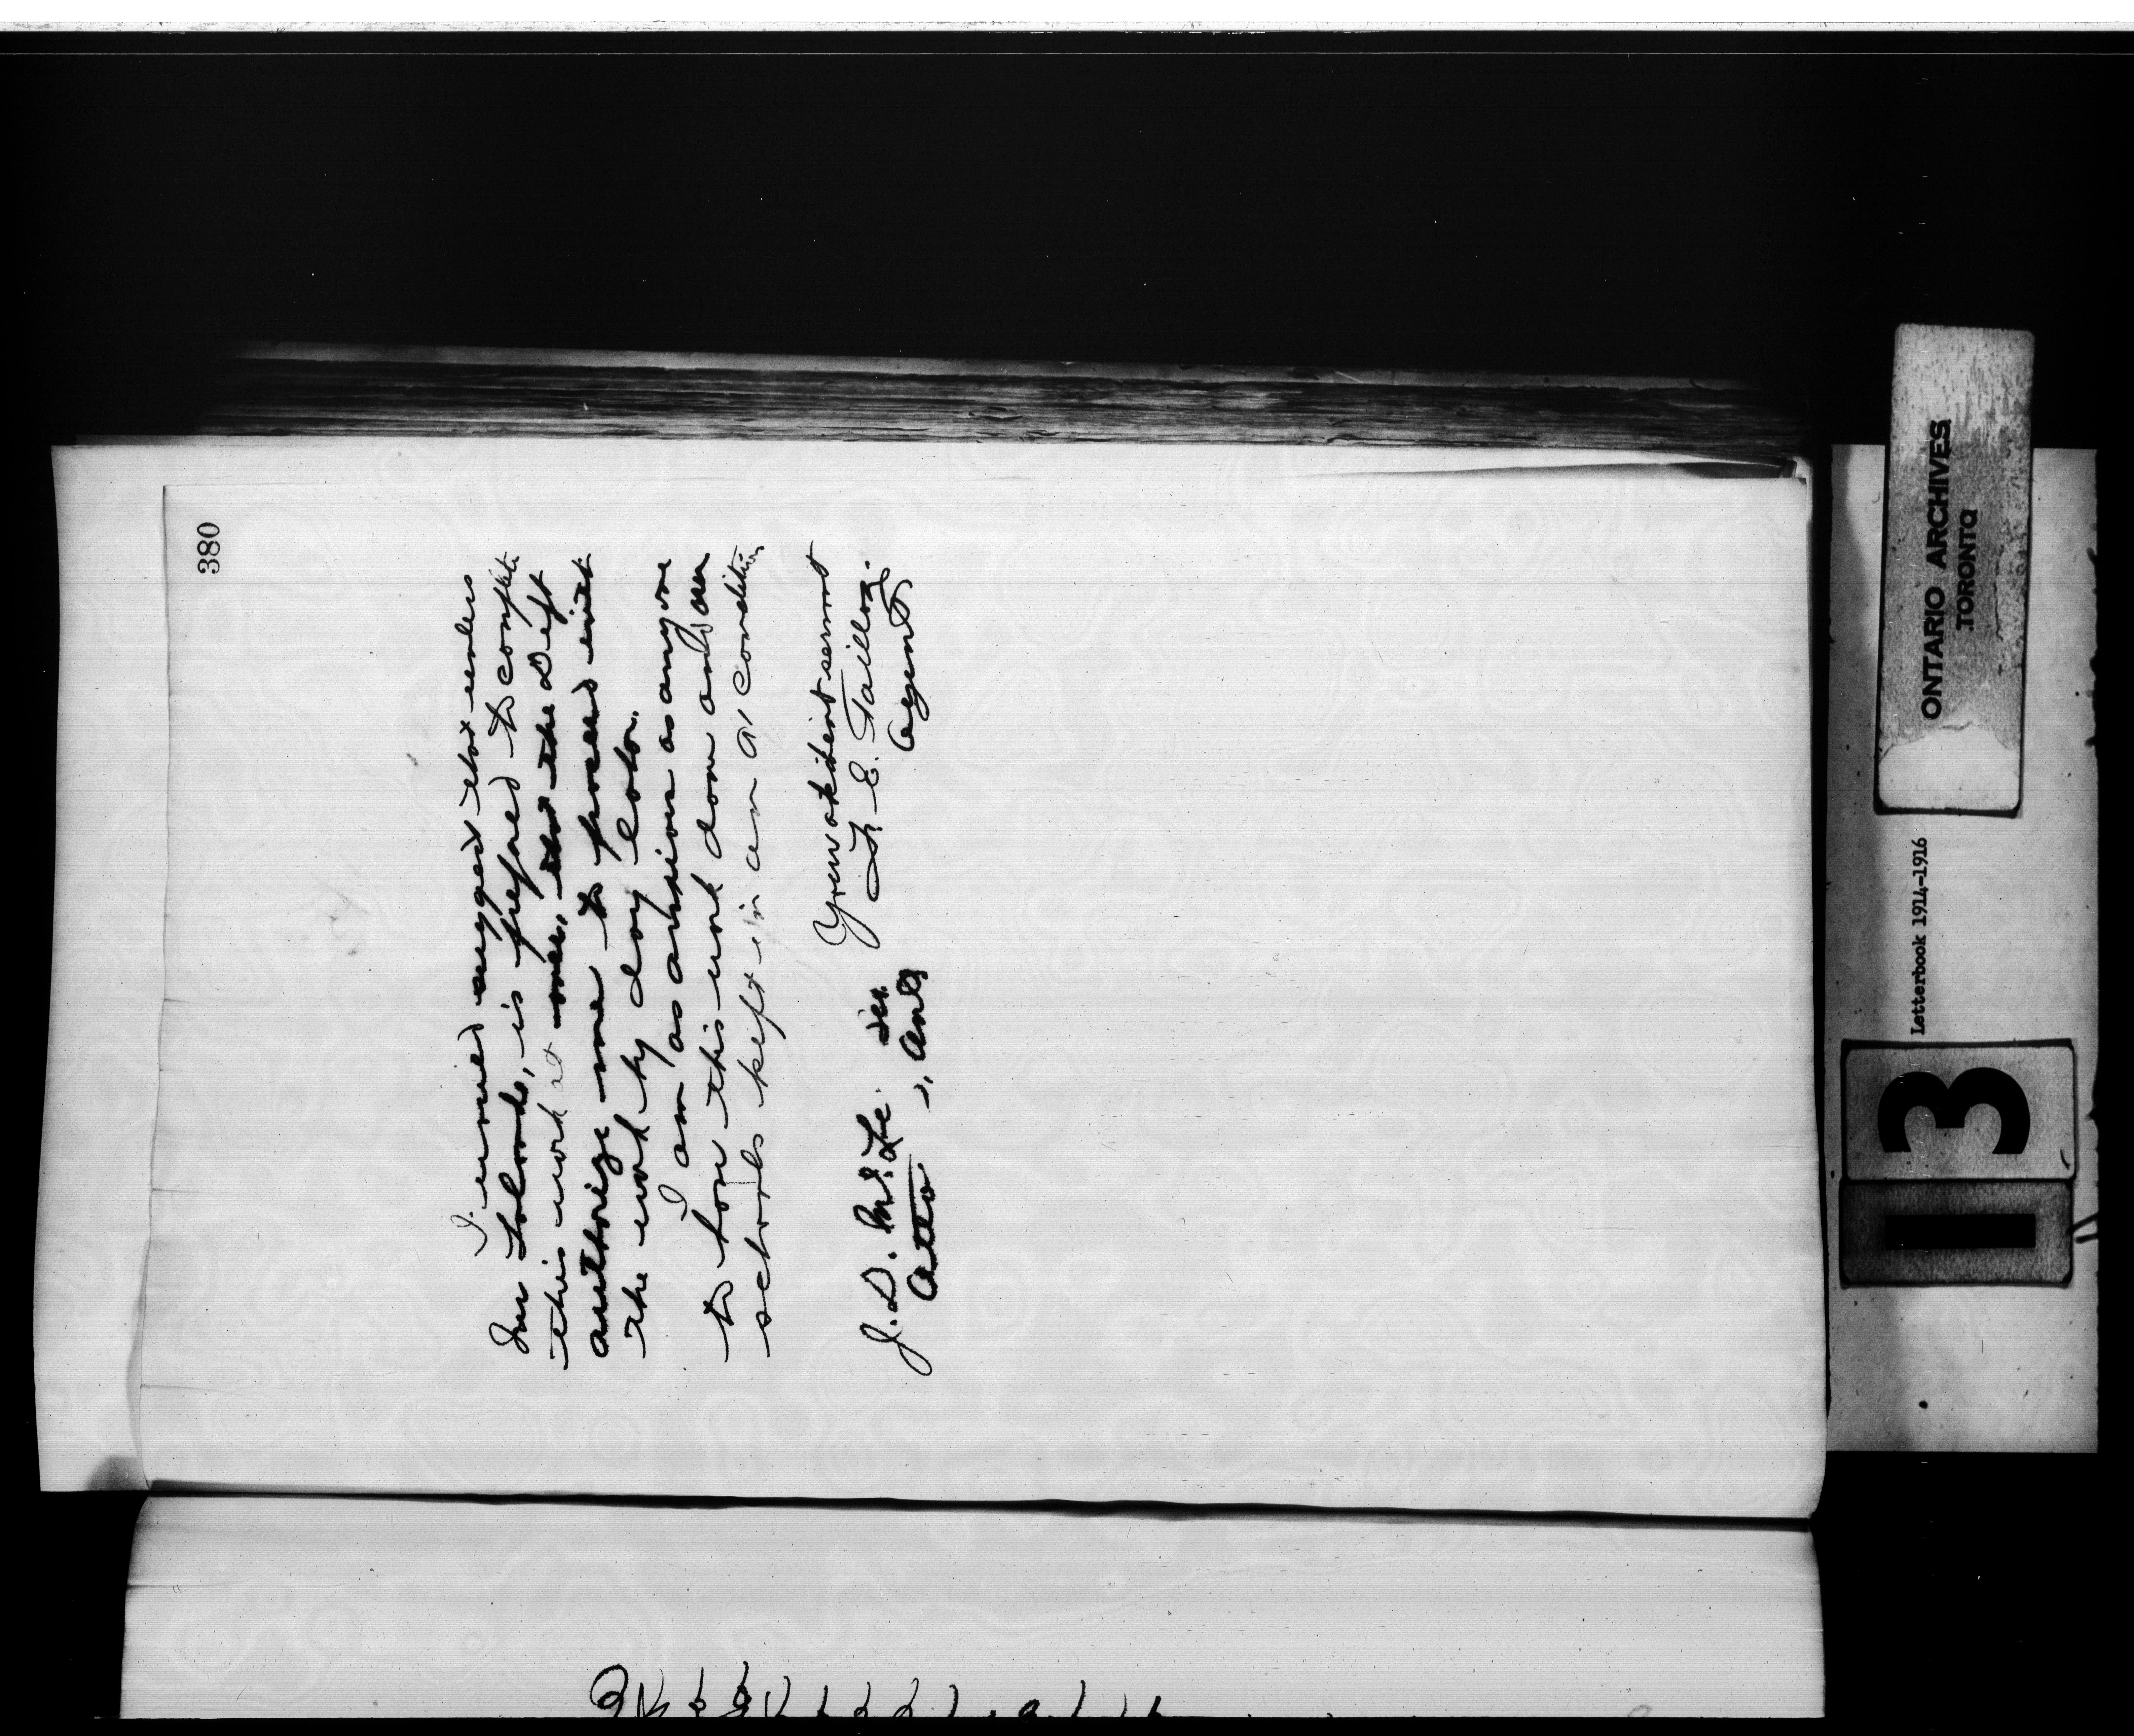 380
I would suggest that unless
Mr , is prepared to complete
this work at once, that the Dept
authorize me to proceed with
the work by day labor.
I am as anxious as anyone
to have this work done and our
schools kept in an a1 condition
Your obedient servant
E. Taillon
Agent
J. D. McLe Sec.
Ottawa, Ont
ONTARIO ARCHIVES
TORONTO
Letterbook 1914-1916
13